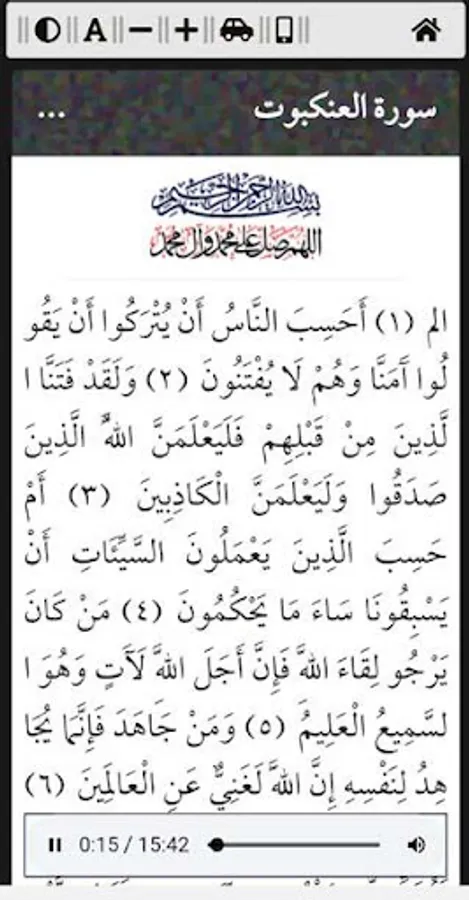 A − +
سورة العنكبوت
...
بسم الله الرحمن الرحيم
اللهم صل على محمد وآل محمد
الم (١) أَحَسِبَ النَّاسُ أَنْ يُتْرَكُوا أَنْ يَقُو
لُوا آَمَنَّا وَهُمْ لَا يُفْتَنُونَ (٢) وَلَقَدْ فَتَنَّا ا
لَّذِينَ مِنْ قَبْلِهِمْ فَلَيَعْلَمَنَّ اللَّهُ الَّذِينَ
صَدَقُوا وَلَيَعْلَمَنَّ الْكَاذِبِينَ (٣) أَمْ
حَسِبَ الَّذِينَ يَعْمَلُونَ السَّيِّئَاتِ أَنْ
يَسْبِقُونَا سَاءَ مَا يَحْكُمُونَ (٤) مَنْ كَانَ
يَرْجُو لِقَاءَ اللَّهِ فَإِنَّ أَجَلَ اللَّهِ لَآَتٍ وَهُوَ ا
لسَّمِيعُ الْعَلِيمُ (٥) وَمَنْ جَاهَدَ فَإِنَّمَا يُجَا
هِدُ لِنَفْسِهِ إِنَّ اللَّهَ لَغَنِيٌّ عَنِ الْعَالَمِينَ (٦)
0:15 / 15:42